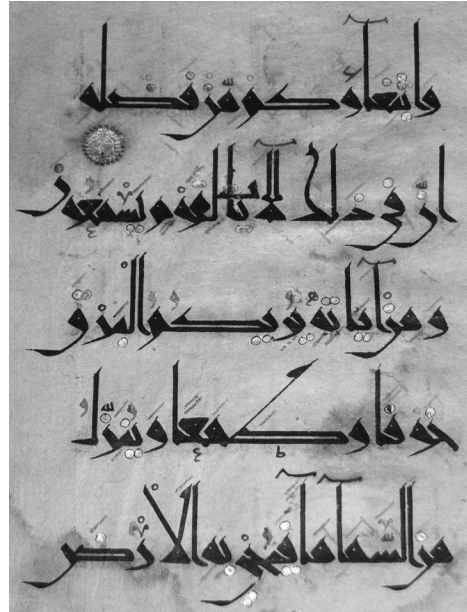 وابتغآؤكم من فضله
ان في ذلك لآيات لقوم يسمعون
ومن آياته يريكم البرق
خوفا وطمعا وينزل
من السمآء مآء فيحي به الأرض